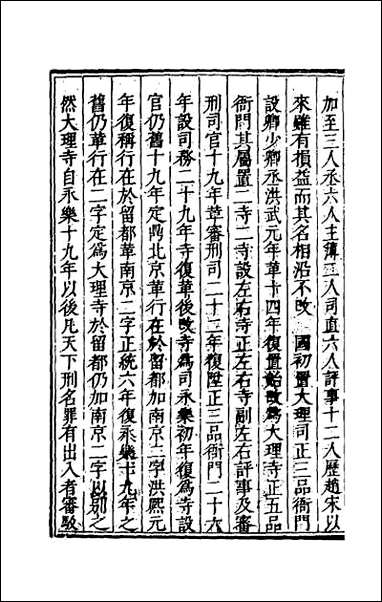 加至三人丞六人主簿二人司直六人評事十二人歷趙宋以
來雖有損益而其名相沿不改 國初置大理司正三品衙門
設卿少卿丞洪武元年革十四年復置始改為大理寺正五品
衙門其屬置二寺二寺設左右寺正左右寺副左右評事及審
刑司官十九年革審刑司二十二年復陞正三品衙門二十六
年設司務二十九年寺復革後改寺為司永樂初年復為寺設
官仍舊十九年定鼎北京革行在於留都加南京二字洪熙元
年復稱行在於留都革南京二字正統六年復永樂十九年之
舊仍革行在二字定為大理寺於留都仍加南京二字以別之
然大理寺自永樂十九年以後凡天下刑名罪有出入者審駁